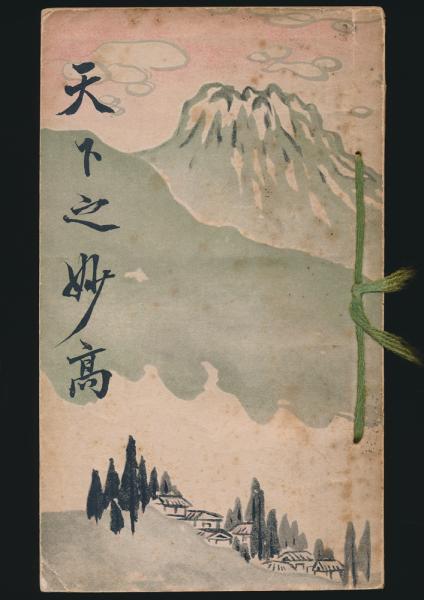 天下之妙高